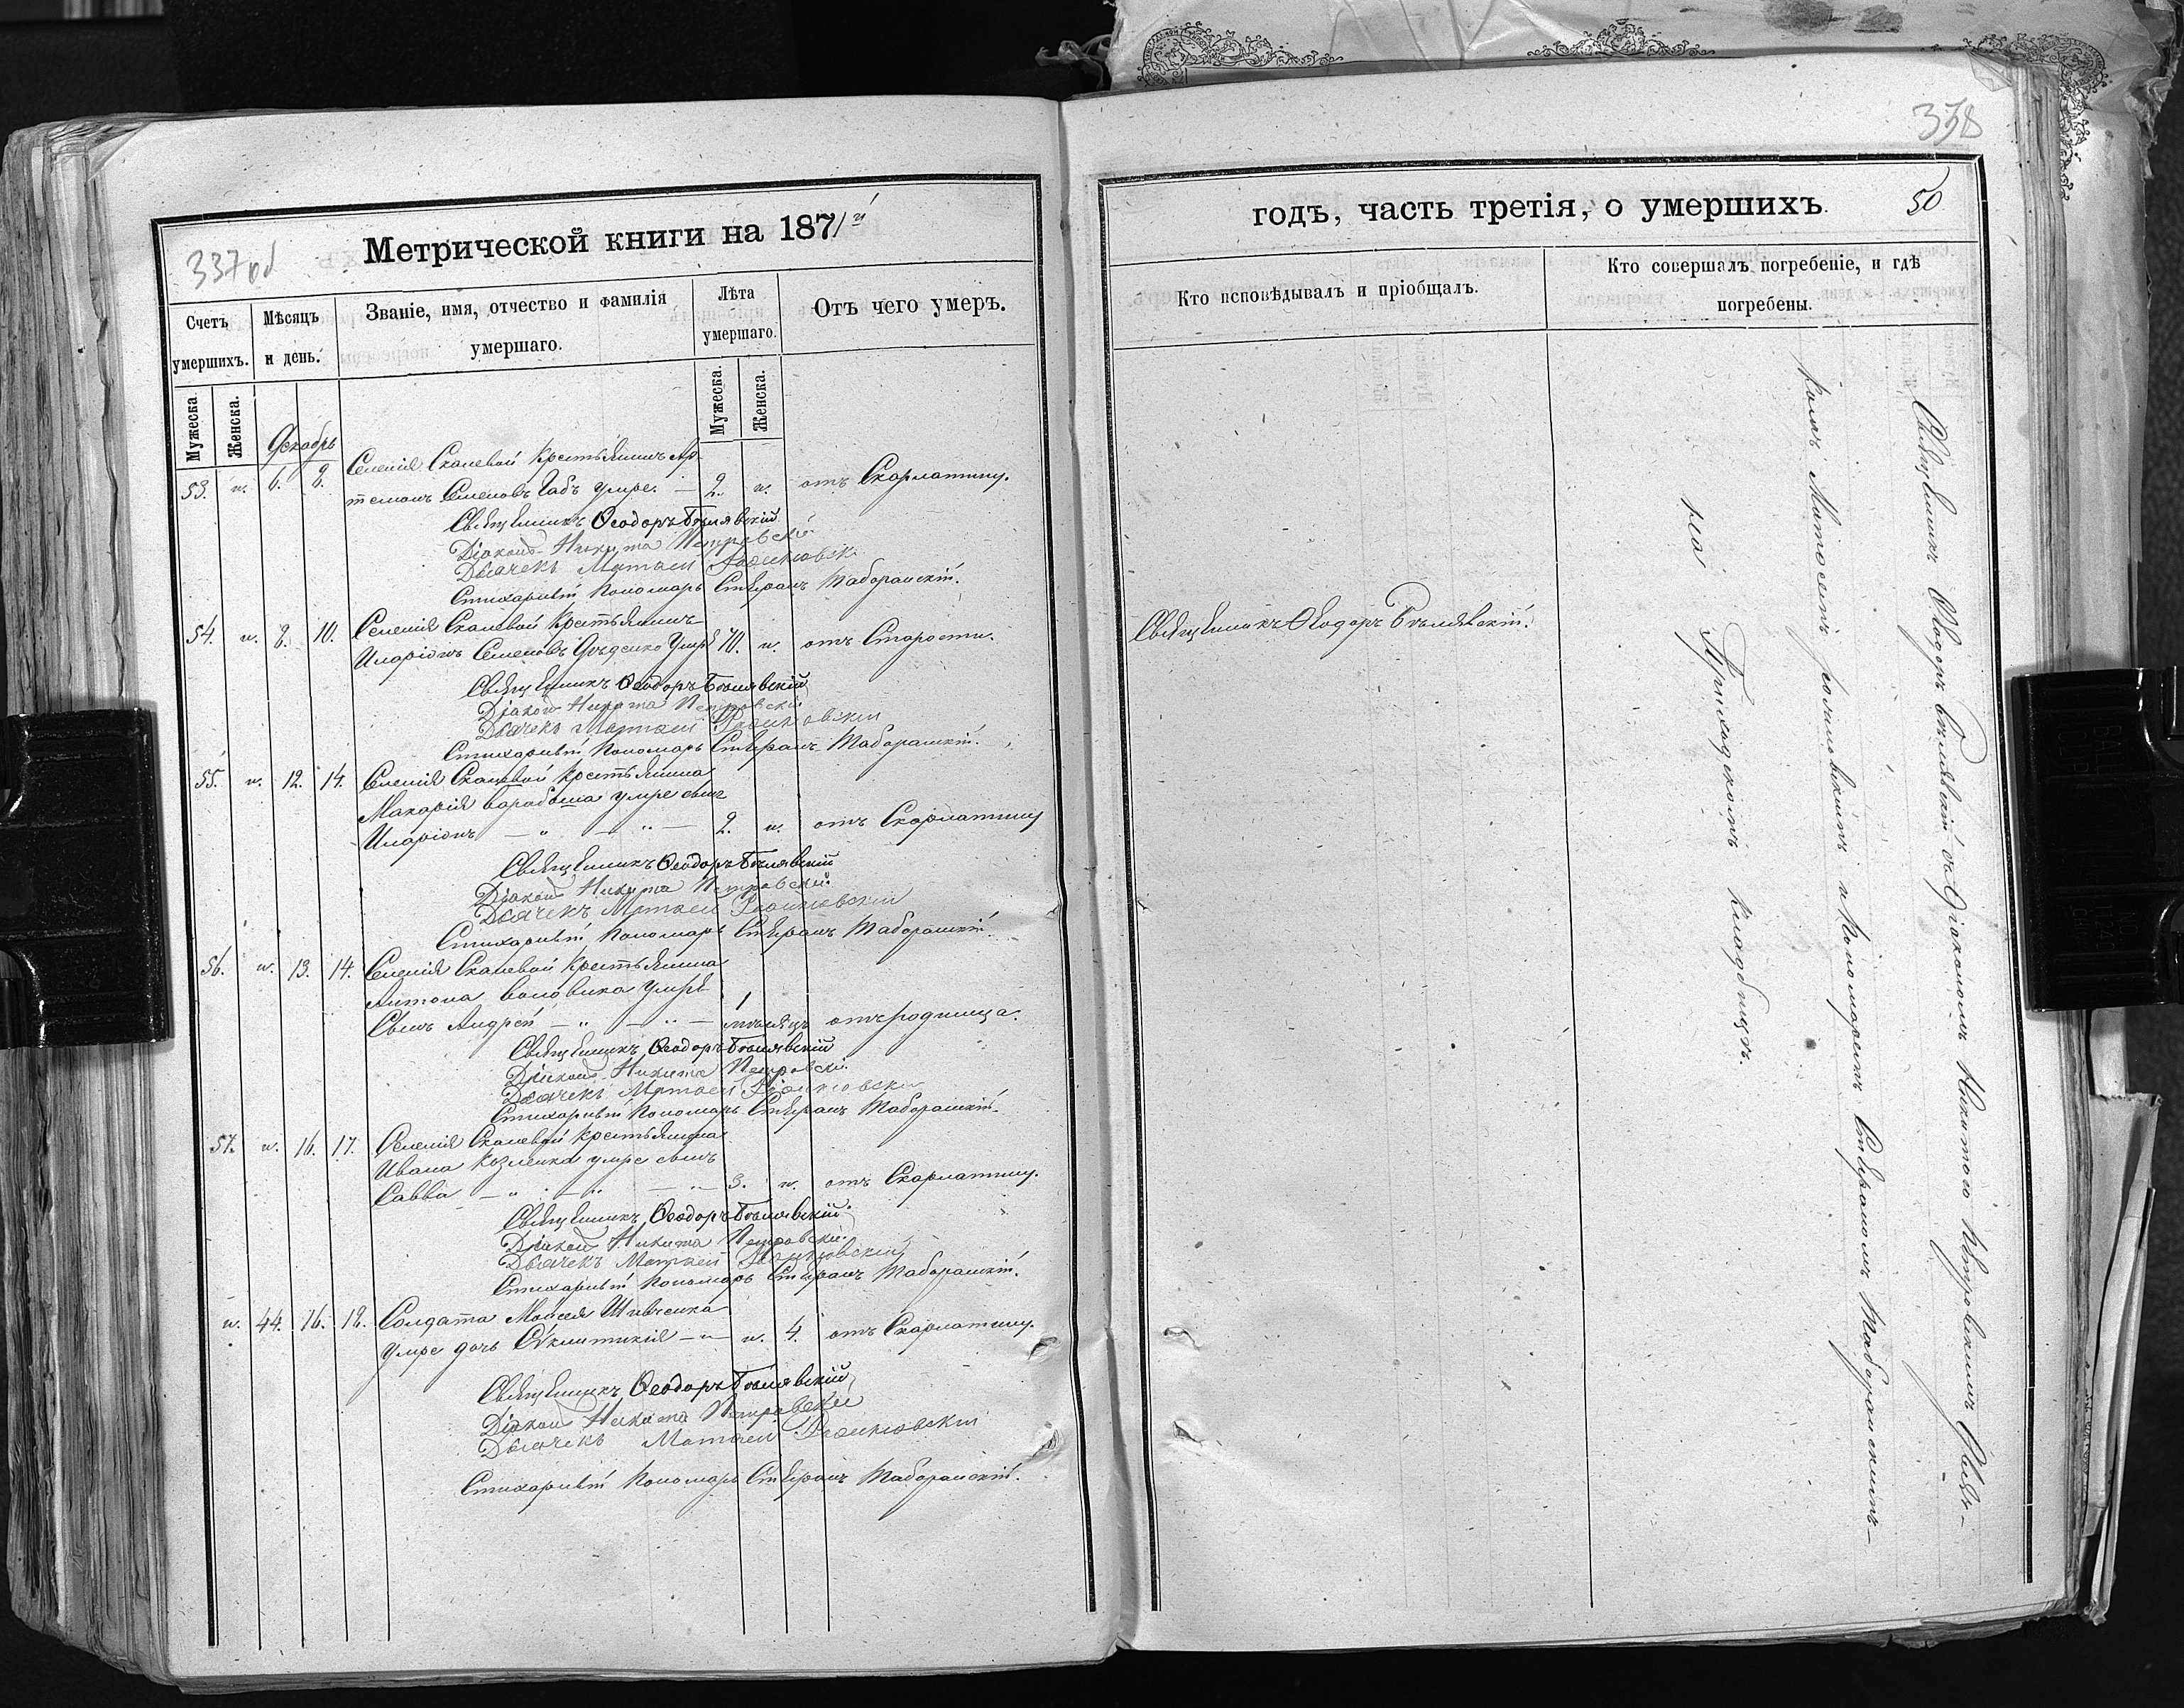 337 об
Метрической книги на 1871й
Счетъ умершихъ.
Мѣсяцъ и день.
Званіе, имя, отчество и фамилія умершаго.
Лѣта умершаго.
Отъ чего умеръ.
Мужеска
Женска.
Мужеска.
Женска.
Декабрь
Селенія Скалевой Крестьянинъ Ар-
53. ". 6. 8. темонъ Семеновъ умре. — 2. ". отъ Скарлатины.
Священникъ Ѳеодоръ Бѣлявскій
Діаконъ Никита Петровскій
Дьячекъ Матѳей
Стихарный Пономарь Стефанъ Таборанскій.
54. ". 8. 10. Селенія Скалевой Крестьянинъ
Иларіонъ Семеновъ умре 70. ". отъ Старости.
Священникъ Ѳеодоръ Бѣлявскій
Діаконъ Никита Петровскій
Дьячекъ Матѳей
Стихарный Пономарь Стефанъ Таборанскій.
55. ". 12. 14. Селенія Скалевой Крестьянина
Макарія Барабаша умре сынъ
Иларіонъ — " — " — 2. ". отъ Скарлатины
Священникъ Ѳеодоръ Бѣлявскій
Діаконъ Никита Петровскій
Дьячекъ Матѳей
Стихарный Пономарь Стефанъ Таборанскій.
56. ". 13. 14. Селенія Скалевой Крестьянина
Антона Воловика умре
Сынъ Андрей — " — " — 1 мѣсяцъ отъ родимца.
Священникъ Ѳеодоръ Бѣлявскій
Діаконъ Никита Петровскій
Дьячекъ Матѳей
Стихарный Пономарь Стефанъ Таборанскій.
57. ". 16. 17. Селенія Скалевой Крестьянина
Ивана Козленка умре сынъ
Савва — " — " — " — 3. ". отъ Скарлатины.
Священникъ Ѳеодоръ Бѣлявскій
Діаконъ Никита Петровскій
Дьячекъ Матѳей
Стихарный Пономарь Стефанъ Таборанскій.
". 44. 16. 18. Солдата Моисея Шевченка
умре дочь — " — ". 4. отъ Скарлатины.
Священникъ Ѳеодоръ Бѣлявскій
Діаконъ Никита Петровскій
Дьячекъ Матѳей
Стихарный Пономарь Стефанъ Таборанскій.
338
годъ, часть третія, о умершихъ.
50
Кто исповѣдывалъ и пріобщалъ.
Кто совершалъ погребеніе, и гдѣ
погребены.
Священникъ Ѳеодоръ Бѣлявскій.
Священникъ Ѳеодоръ Бѣлявскій съ Діакономъ Никитою Петровскимъ Дьяч-
комъ Матѳеемъ и Пономаремъ Стефаномъ Таборанскимъ
на Приходскомъ кладбищѣ.